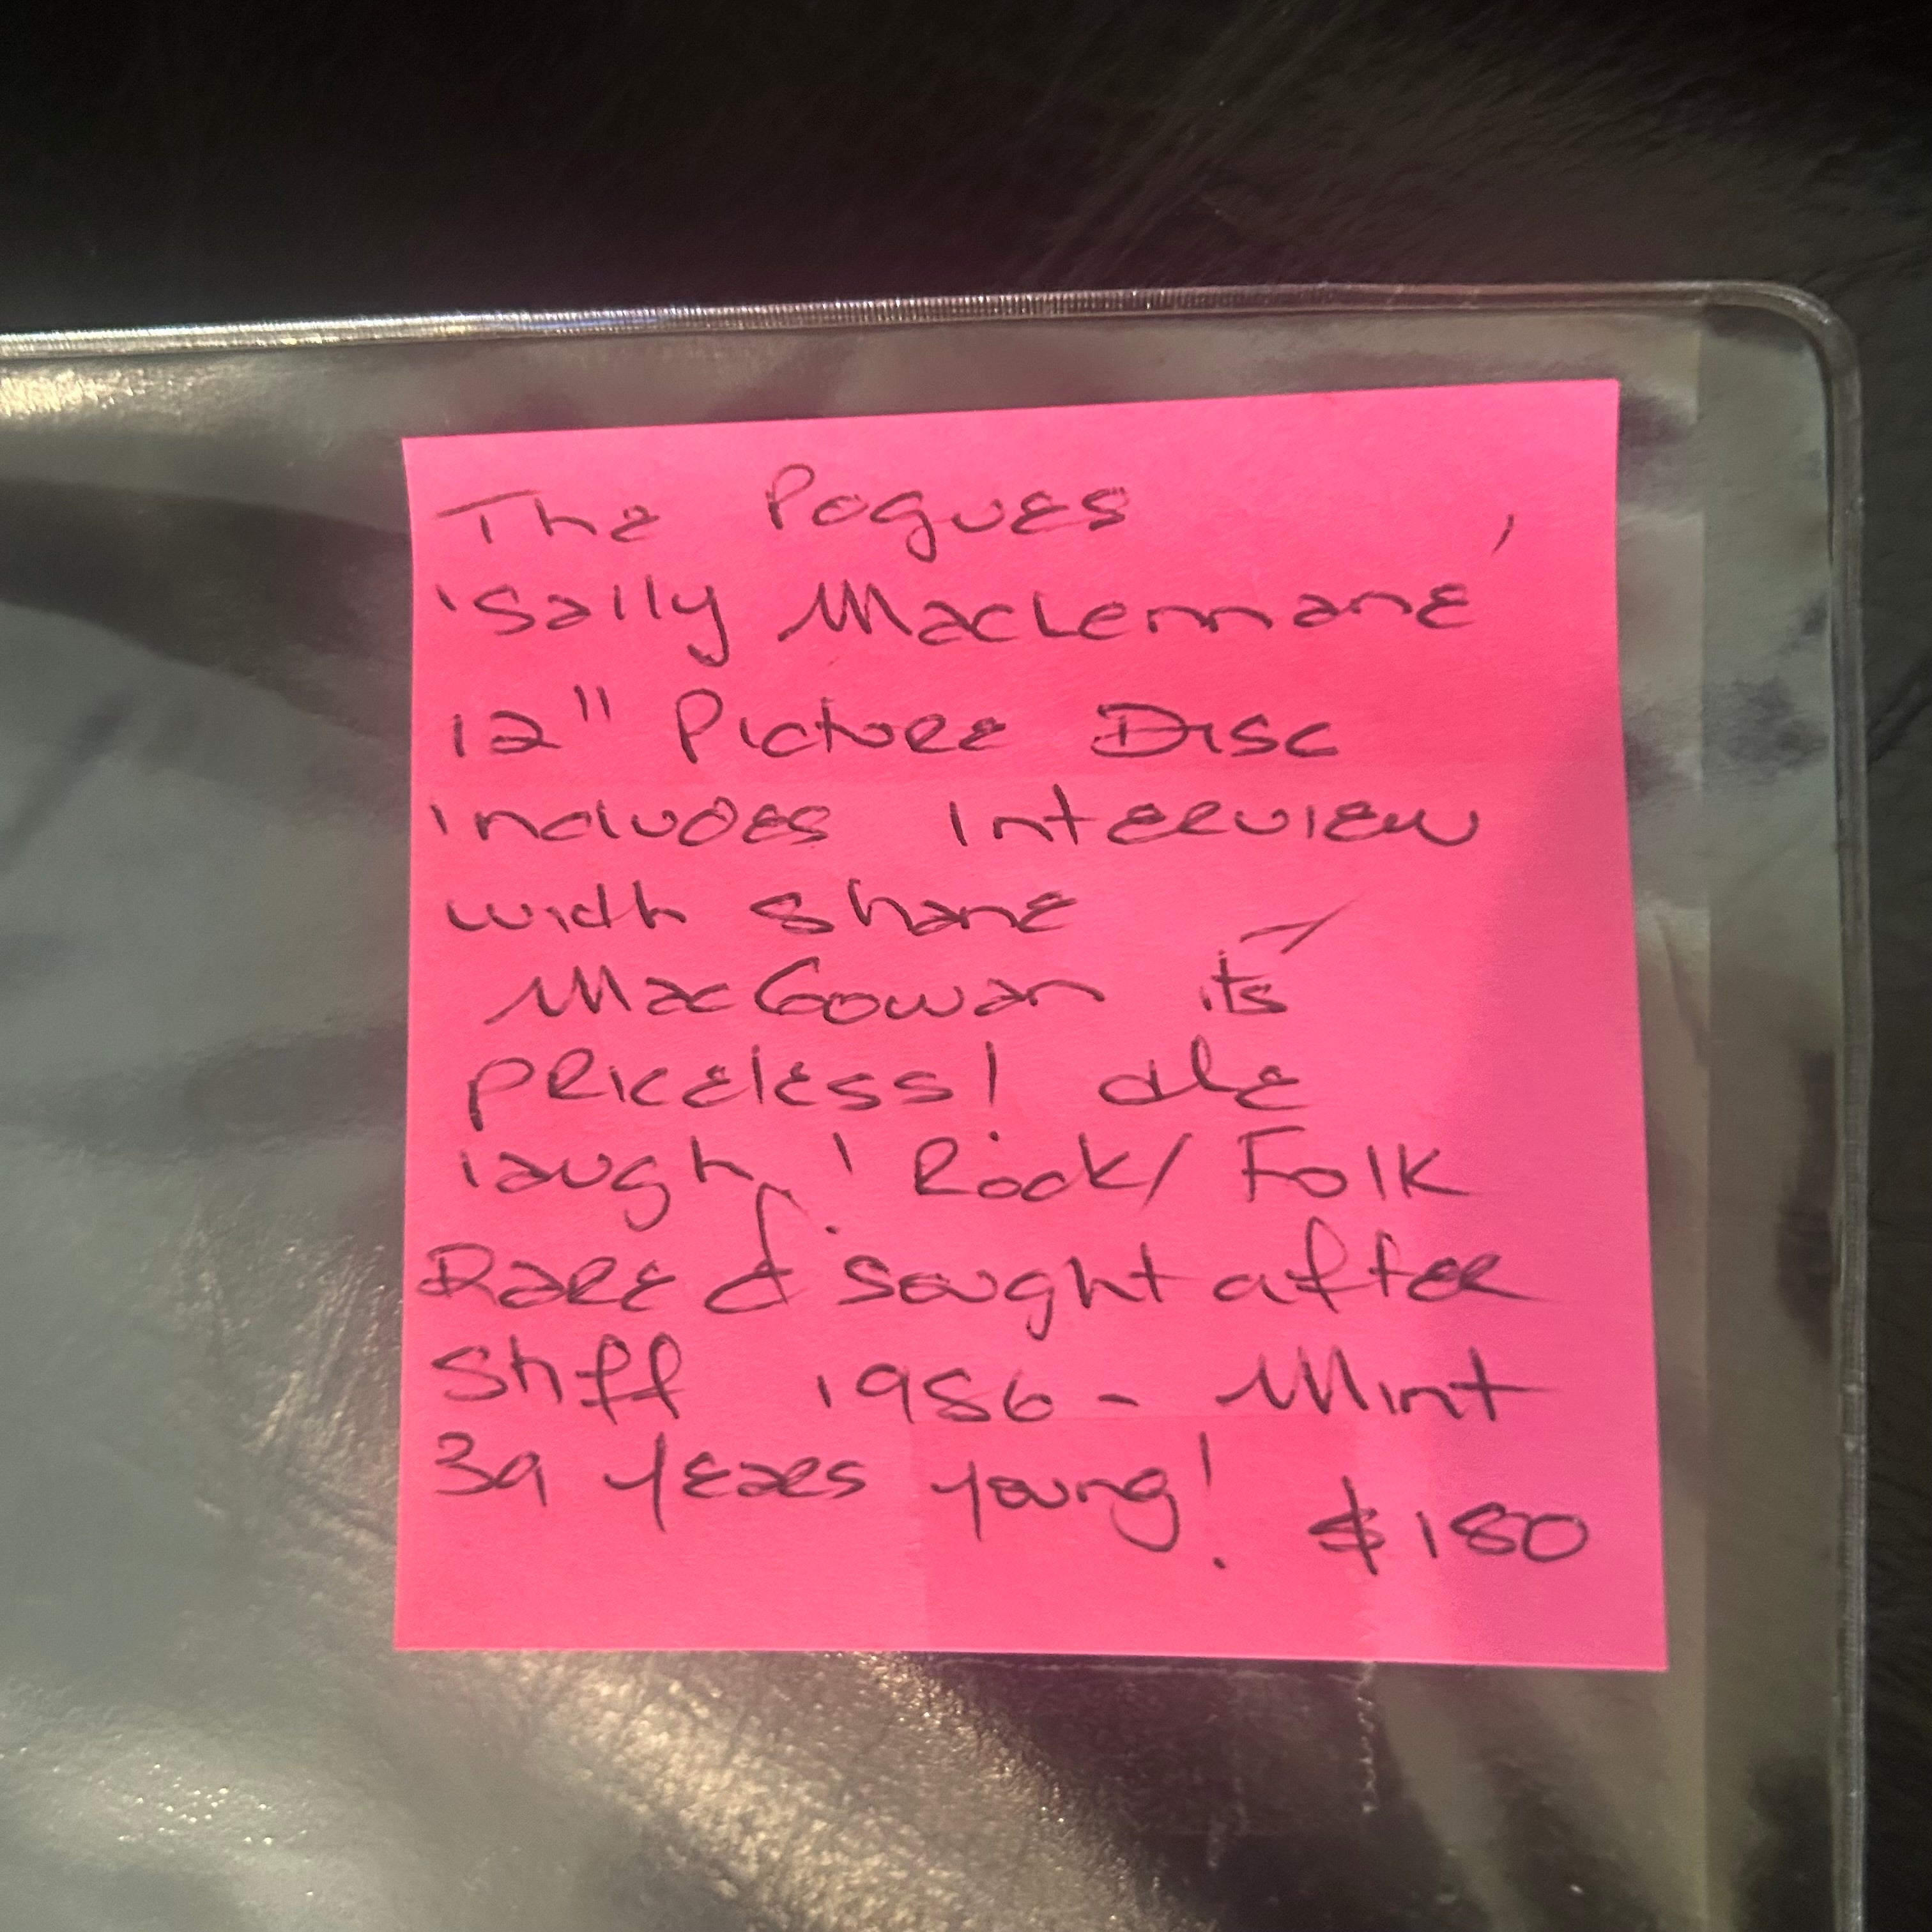 The Pogues
'Sally MacLennane'
12" Picture Disc
includes Interview
with Shane
MacGowan its
priceless!
laugh! Rock/Folk
Rare & sought after
Stiff 1986 - Mint
39 years young! $180